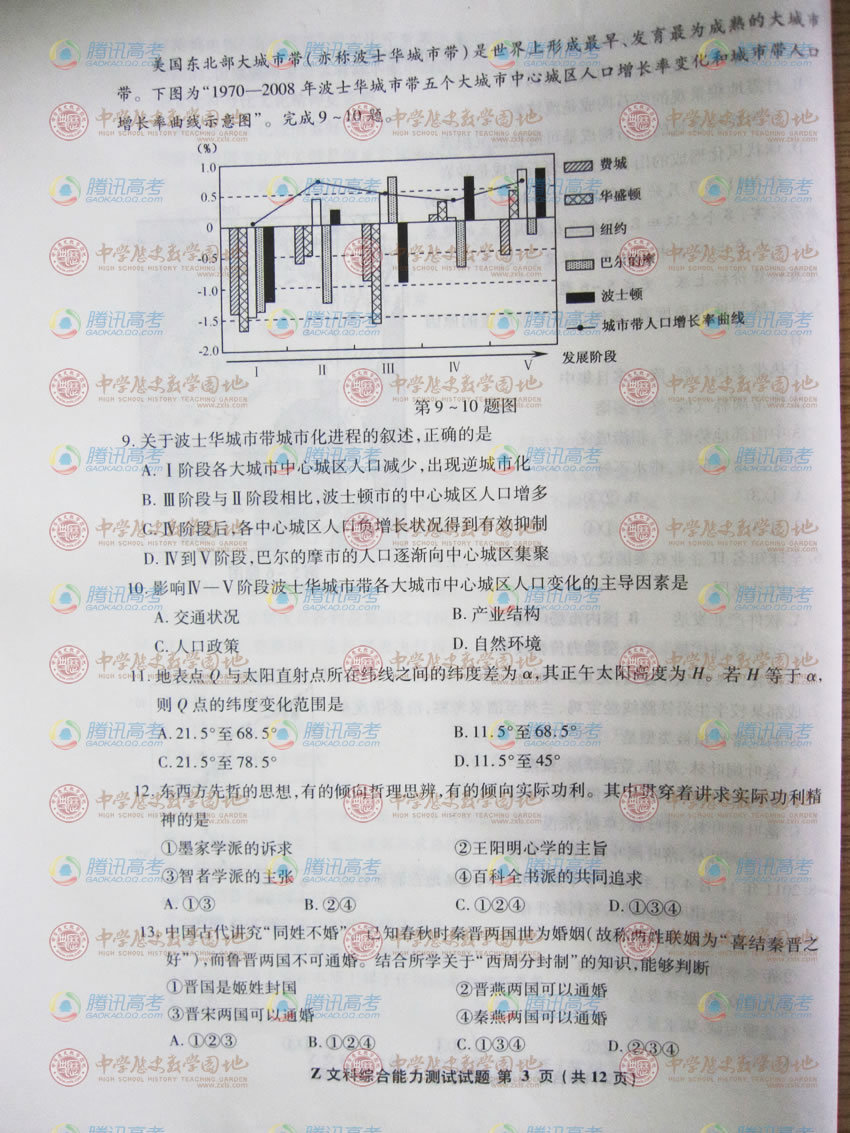 美国东北部大城市带(亦称波士华城市带)是世界上形成最早、发育最为成熟的大城市
带。下图为“1970—2008年波士华城市带五个大城市中心城区人口增长率变化和城市带人口
增长率曲线示意图”。完成9~10题。
(%)
1.0
0.5
0
-0.5
-1.0
-1.5
-2.0
Ⅰ Ⅱ Ⅲ Ⅳ Ⅴ
费城
华盛顿
纽约
巴尔的摩
波士顿
城市带人口增长率曲线
发展阶段
第9~10题图
9.关于波士华城市带城市化进程的叙述,正确的是
A.Ⅰ阶段各大城市中心城区人口减少,出现逆城市化
B.Ⅲ阶段与Ⅱ阶段相比,波士顿市的中心城区人口增多
C.Ⅳ阶段后,各中心城区人口负增长状况得到有效抑制
D.Ⅳ到Ⅴ阶段,巴尔的摩市的人口逐渐向中心城区集聚
10.影响Ⅳ—Ⅴ阶段波士华城市带各大城市中心城区人口变化的主导因素是
A.交通状况 B.产业结构
C.人口政策 D.自然环境
11.地表点Q与太阳直射点所在纬线之间的纬度差为α,其正午太阳高度为H。若H等于α,
则Q点的纬度变化范围是
A.21.5°至68.5° B.11.5°至68.5°
C.21.5°至78.5° D.11.5°至45°
12.东西方先哲的思想,有的倾向哲理思辨,有的倾向实际功利。其中贯穿着讲求实际功利精
神的是
①墨家学派的诉求 ②王阳明心学的主旨
③智者学派的主张 ④百科全书派的共同追求
A.①③ B.②④ C.①②④ D.①③④
13.中国古代讲究“同姓不婚”。已知春秋时秦晋两国世为婚姻(故称两姓联姻为“喜结秦晋之
好”),而鲁晋两国不可通婚。结合所学关于“西周分封制”的知识,能够判断
①晋国是姬姓封国 ②晋燕两国可以通婚
③晋宋两国可以通婚 ④秦燕两国可以通婚
A.①②③ B.①②④ C.①③④ D.②③④
Z文科综合能力测试试题 第3页(共12页)
腾讯高考
GAOKAO.QQ.COM
中学历史教学园地
HIGH SCHOOL HISTORY TEACHING GARDEN
www.zxls.com